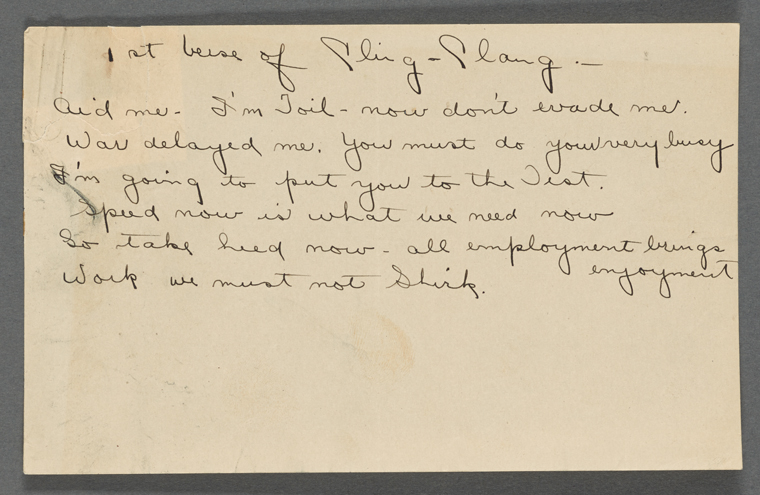 1st verse of Pling-Plang.-
Aid me - I'm Toil - now don't evade me.
War delayed me. You must do your very busy
I'm going to put you to the Test.
Speed now is what we need now
So take heed now - all employment brings
enjoyment
Work we must not Shirk.